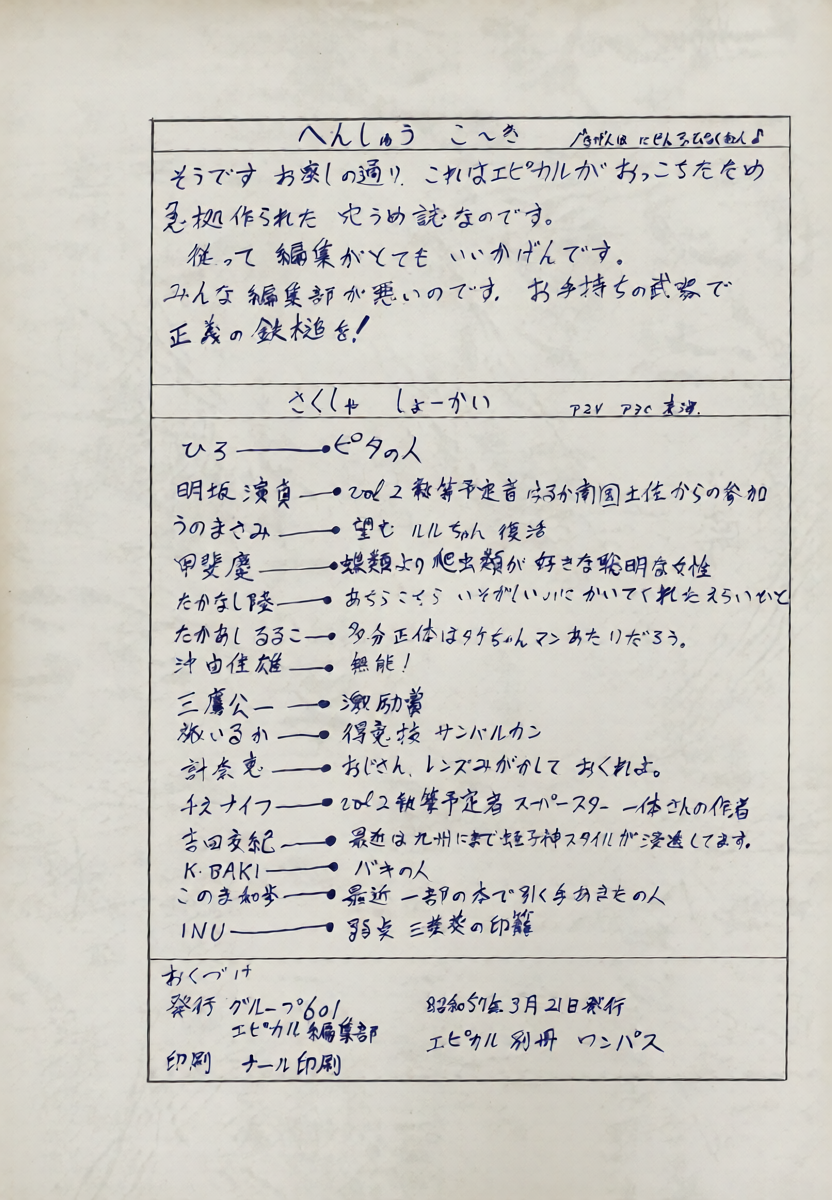 へんしゅう こ〜き
そうです お察しの通り、これはエピカルが おっこちたため
急拠作られた 穴うめ誌なのです。
従って 編集がとても いいかげんです。
みんな編集部が悪いのです。お手持ちの武器で
正義の鉄槌を!
さくしゃ しょーかい P2V P3C
ひろ ピタの人
明坂 演真 vol 2 執筆予定者 はるか南国土佐からの参加
うのまさみ 望む ルルちゃん 復活
甲斐慶 蝶類より爬虫類が好きな聡明な女性
たかなし陸 あちらこちら いそがしいのに かいてくれた えらいひと
たかあし るるこ 多分正体はタケちゃんマンあたりだろう。
沖由佳雄 無能!
三鷹公一 激励賞
旅いるか 得意技 サンバルカン
計奈恵 おじさん、レンズみがかして おくれよ。
千之ナイフ vol 2 執筆予定者 スーパースター 一体さんの作者
吉田交紀 最近は九州にまで蛭子神スタイルが浸透してます。
K・BAKI バキの人
このま和歩 最近 一部の本で引く手あまたの人
INU 弱点 三葉葵の印籠
おくづけ
発行 グループ601
エピカル編集部
昭和57年3月21日発行
エピカル 別冊 ワンパス
印刷 ナール印刷